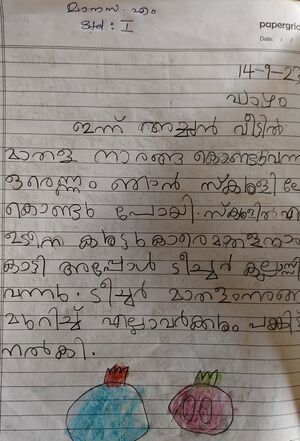 മാനസ. എം
ക്ലാസ് : I
papergrid
Date: / /
14-9-23
വ്യാഴം
ഇന്ന് അച്ഛൻ വീട്ടിൽ
മാതള നാരങ്ങ കൊണ്ടുവന്നു
ഒരെണ്ണം ഞാൻ സ്കൂളിലേ
കൊണ്ടു പോയി. സ്കൂളിൽ എ
കൂട്ടുകാരെ മാതളനാ
കാട്ടി അപ്പോൾ ടീച്ചർ ക്ലാസ്സി
വന്നു. ടീച്ചർ മാതളനാരങ്ങ
മുറിച്ച് എല്ലാവർക്കും പങ്കിട്ട്
നൽകി.